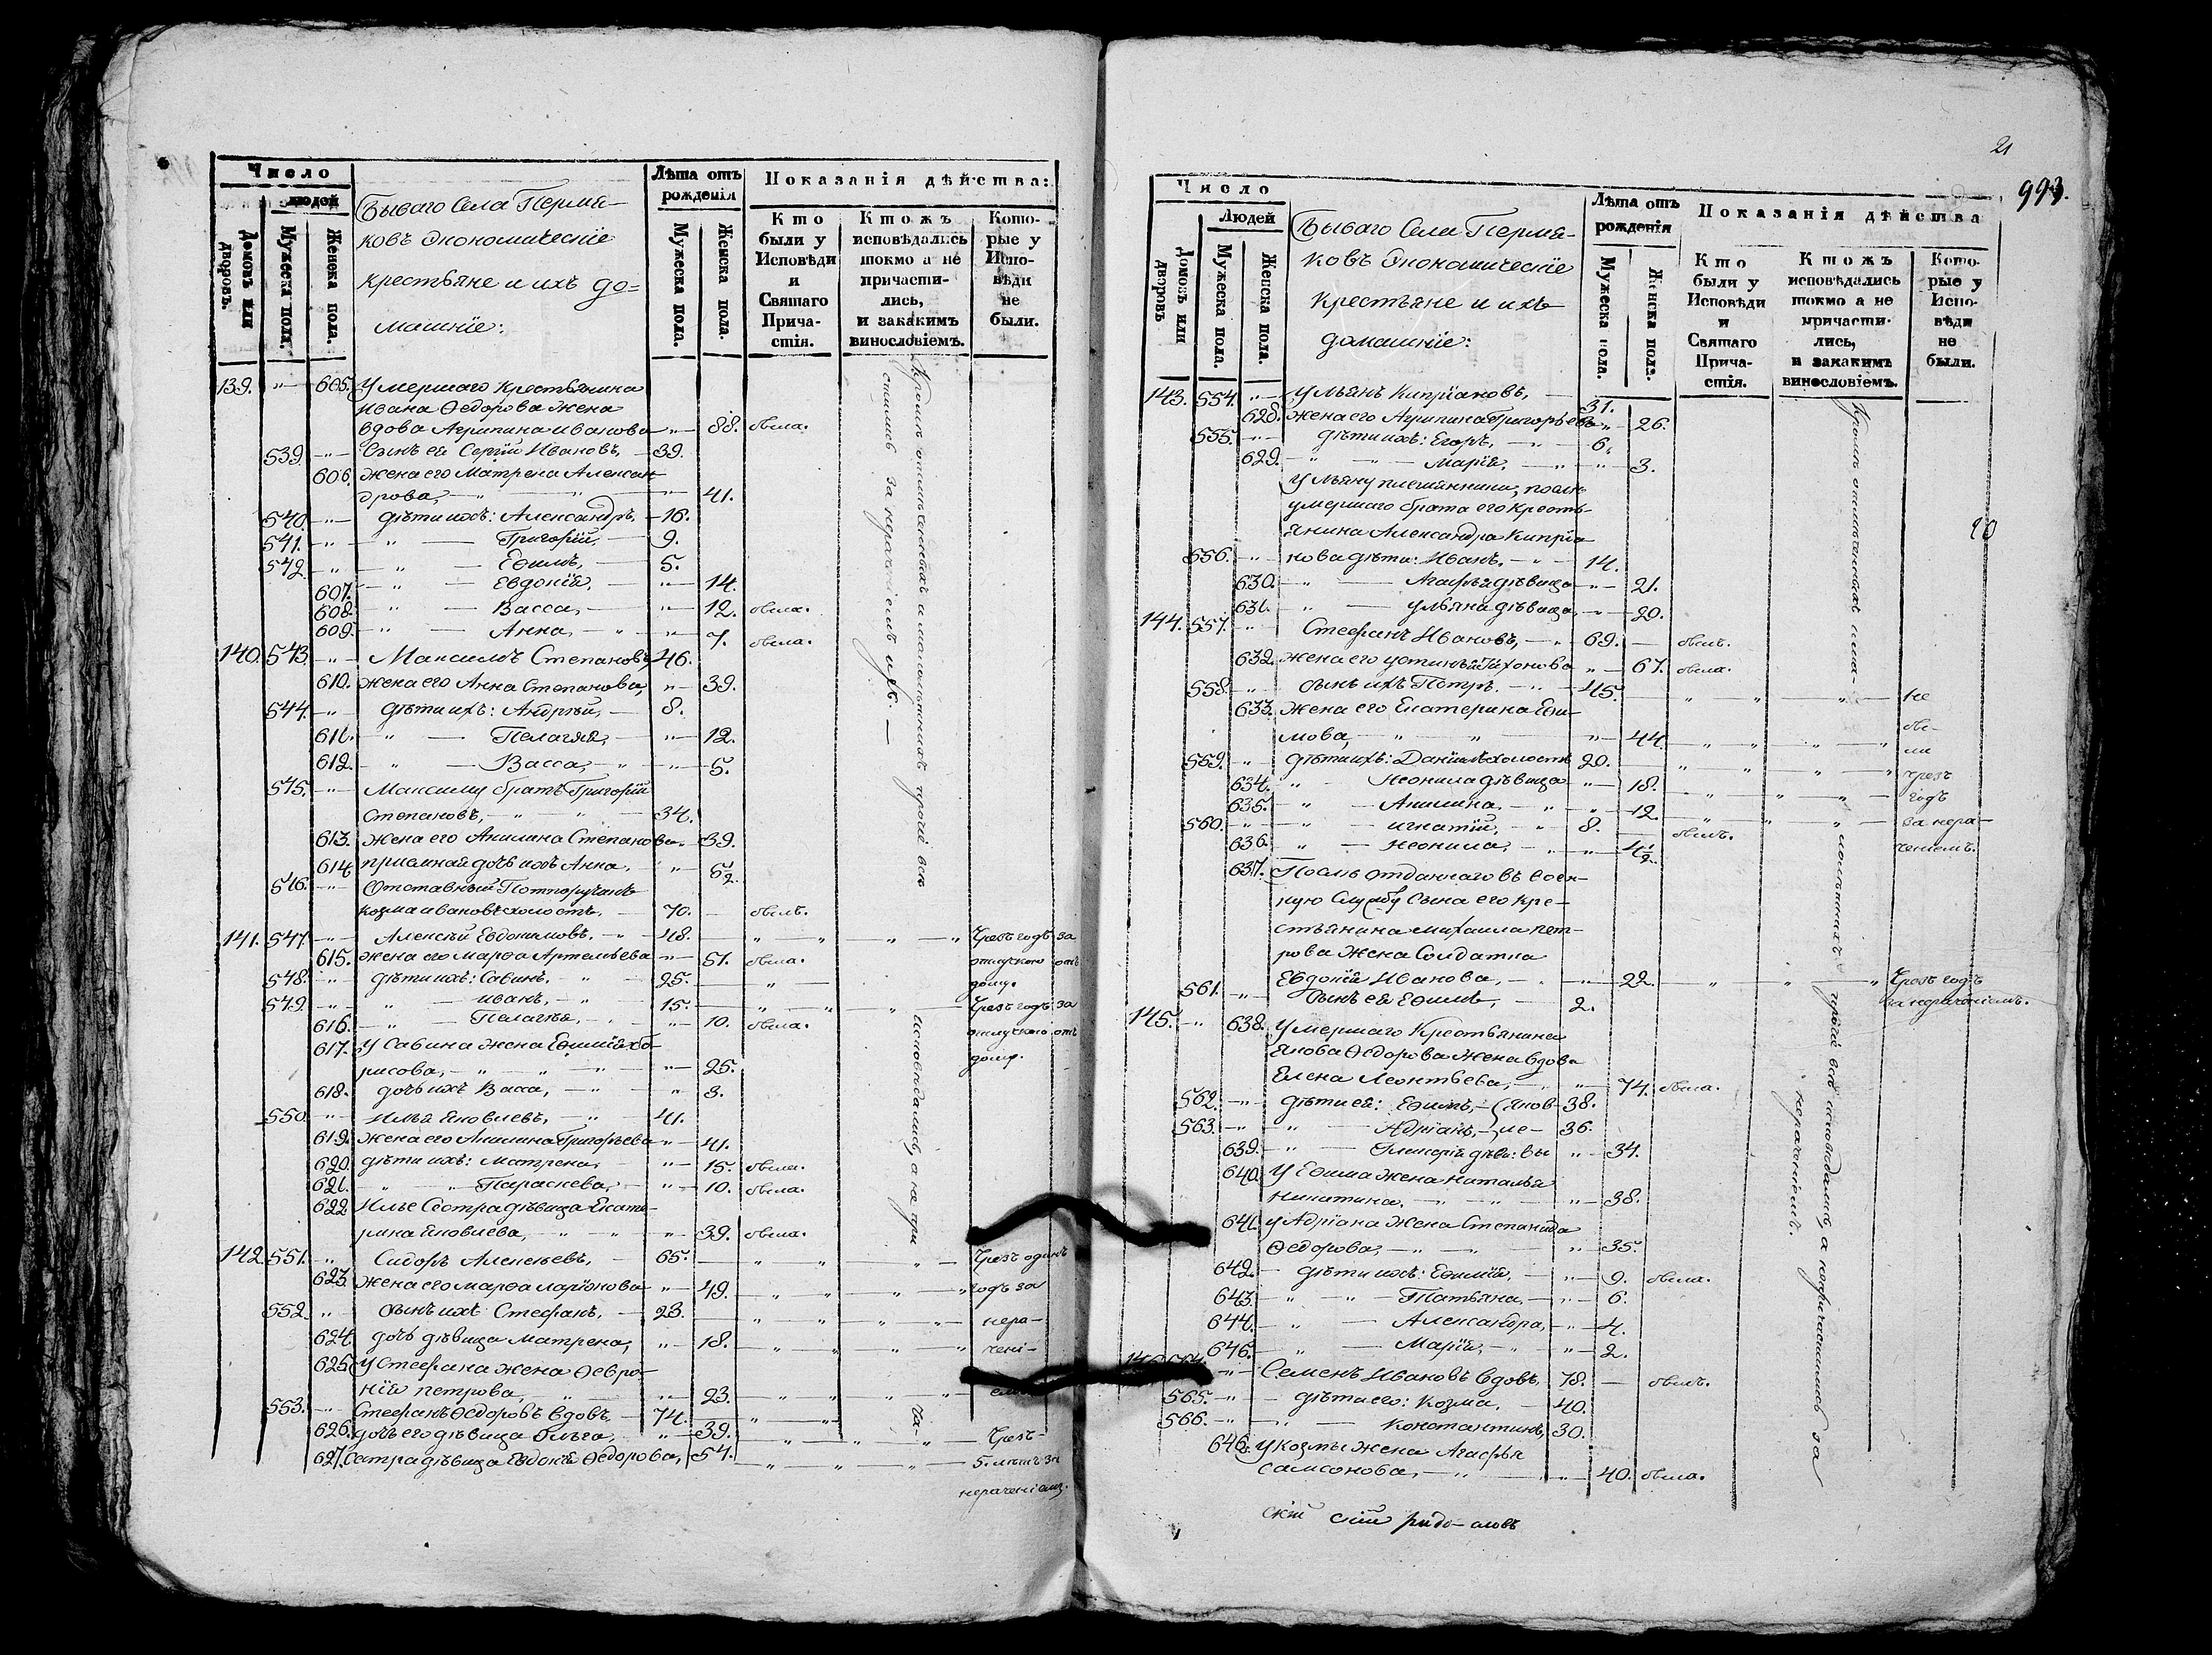 Число
людей
Домовъ или дворовъ.
Мужеска пола.
Женска пола.
Бываго Села Пермя-
ковъ Экономическïе
крестьяне и ихъ до=
машнïе:
Лѣта отъ рожденiя
Мужеска пола.
Женска пола.
Показанiя дѣйства:
Кто были у Исповѣди и Святаго Прича-стiя.
Ктожъ исповѣдались токмо а не причасти-лись, и закакимъ винословiемъ.
Кото-рые у Испо-вѣди не были.
139. "— 605. Умершаго крестьянина
Ивана Ѳедорова жена
вдова Агрипина Иванова —"— 88. была.
539. —"— Сынъ ея Сергiй Ивановъ, — 39.
606. жена его Матрена Алексан-
дрова, —"— 41.
540. —"— дѣти ихъ: Александръ, — 16.
541. —"— " — Григорïй, — 9.
542. —"— " — Еѳимъ, — 5.
607. —"— Евдокïя, — "— 14.
608. —"— Васса, — "— 12. была.
609. —"— Анна, — "— 7. была.
140. 543. —"— Максимъ Степановъ, 46.
610. жена его Анна Степанова, "— 39.
544. —"— дѣти ихъ: Андрѣй, — 8.
611. —"— Пелагея, — "— 12.
612. —"— Васса, —"— 5.
545. —"— Максиму братъ Григорïй
Степановъ, —"— 34.
613. жена его Акилина Степанова "— 39.
614. прïемная дочь ихъ Анна, "— 6½
546. —"— Отставный Потпоручикъ
Козма Ивановъ холостъ, — 70. — былъ.
141. 547. —"— Алексѣй Евдокимовъ, —"— 48. — " — " — " Чрезъ годъ за
615. жена его Марѳа Артемьева "— 51. была. отлучкою отъ
548. —"— дѣти ихъ: Савинъ, " — 25. — " — дому.
549. —"— " — Иванъ, —"— 15. — " — " — Чрезъ годъ за
616. —"— Пелагея, — "— 10. была. отлучкою отъ
617. У Савина жена Еѳимïя Бо- дому.
рисова, —"— 25.
618. дочь ихъ Васса, —"— 3.
550. —"— Илья Яковлевъ, —"— 41.
619. жена его Акилина Григорьева "— 41.
620. дѣти ихъ: Матрена, "— 15. была.
621. " " Параскева, — "— 10. была.
622 Илье Сестра дѣвица Екате-
рина Яковлева, —"— 39. была.
142. 551. —"— Сидоръ Алексѣевъ, — 65. — " — " — Чрезъ одинъ
623. жена его Марѳа Ларïонова "— 49. — " — " — годъ за
552. "— сынъ ихъ Стефанъ, — 23. — " — " — нера-
624. дочь дѣвица Матрена, "— 18. — " — " — ченi-
625. У Стефана жена Ѳевро-
нïя Петрова, —"— 23. — " — " —
553. —"— Стефанъ Ѳедоровъ вдовъ, — 74. — " —
626. дочь его дѣвица Ольга, "— 39. — " — " — Чрезъ
627. Сестра дѣвица Евдокïя Ѳедорова, 54. — " — " — 5. лѣтъ за
нераченïемъ.
Кромѣ отмѣченныхъ и малолѣтнихъ прочïе всѣ исповѣдались, а не при ча-
стились за нераченïемъ ихъ. —
21
993.
Число
Людей
Домовъ или дворовъ
Мужеска пола.
Женска пола.
Бываго Села Пермя-
ковъ Экономическïе
крестьяне и ихъ
домашнïе:
Лѣта отъ рожденiя
Мужеска пола.
Женска пола.
Показанiя дѣйства
Кто были у Исповѣди и Святаго Прича-стiя.
Ктожъ исповѣдались токмо а не причасти-лись, и закакимъ винословiемъ.
Кото-рые у Испо-вѣди не были.
143. 554. "— Ульянъ Кипрïановъ, — 31.
628. жена его Агрипина Григорьева "— 26.
555. —"— дѣти ихъ: Егоръ, —"— 6.
629. —"— Марïя, —"— 3.
Ульяну племянники, послѣ
умершаго брата его кресть-
янина Александра Кипрïа-
556. —"— нова дѣти: Иванъ, —"— 14.
630. —"— Агафья дѣвица —"— 21.
631. —"— Ульяна дѣвица, —"— 20.
144. 557. —"— Стефанъ Ивановъ, —"— 69. — былъ.
632. жена его Устинья Тихонова "— 67. была.
558. —"— сынъ ихъ Петръ, —"— 45. — " — " — не
633. жена его Екатерина Еѳи- бы-
мова, —"— 44. — " — " — ли
559. —"— дѣти ихъ: Данïилъ холостъ 20. — " — " — чрезъ
634. " — Неонила дѣвица "— 18. — " — " — годъ
635. —"— Акилина, —"— 12. — " — " — за нера-
560. —"— Игнатïй, —"— 8. — былъ. ченïемъ.
636. —"— Неонила, —"— ½
637. Послѣ отданнаго въ воен-
ную Службу сына его кре-
стьянина Михаила Пет-
рова жена Солдатка
Евдокïя Иванова, — "— 22. " — " — " Чрезъ годъ
561. —"— Сынъ ея Еѳимъ, — 2. за нераченïемъ.
145. —"— 638. Умершаго Крестьянина
Якова Ѳедорова жена вдова
Елена Леонтьева, —"— 74. была.
562. —"— дѣти ея: Еѳимъ, — (Яков- 38.
563. —"— " — Адрïанъ, — ле- 36.
639. —"— Гликерïя дѣв: вы "— 34.
640. У Еѳима жена Наталья
Никитина, —"— 38.
641. У Адрïана жена Степанида
Ѳедорова, —"— 35.
642. — дѣти ихъ: Еѳимïя, —"— 9. была.
643. —"— Татьяна, —"— 6.
644. —"— Александра, —"— 4.
646. —"— Марïя, —"— 2.
146. 564. —"— Семенъ Ивановъ вдовъ, 78. — былъ.
565. —"— дѣти его: Козма, — 40.
566. —"— Константинъ, 30.
646. У Козмы жена Агафья
Самсонова, —"— 40. была.
Кромѣ отмѣченныхъ и ма- лолѣтнихъ прочïе всѣ исповѣдались, а не причастились за
нераченïемъ.